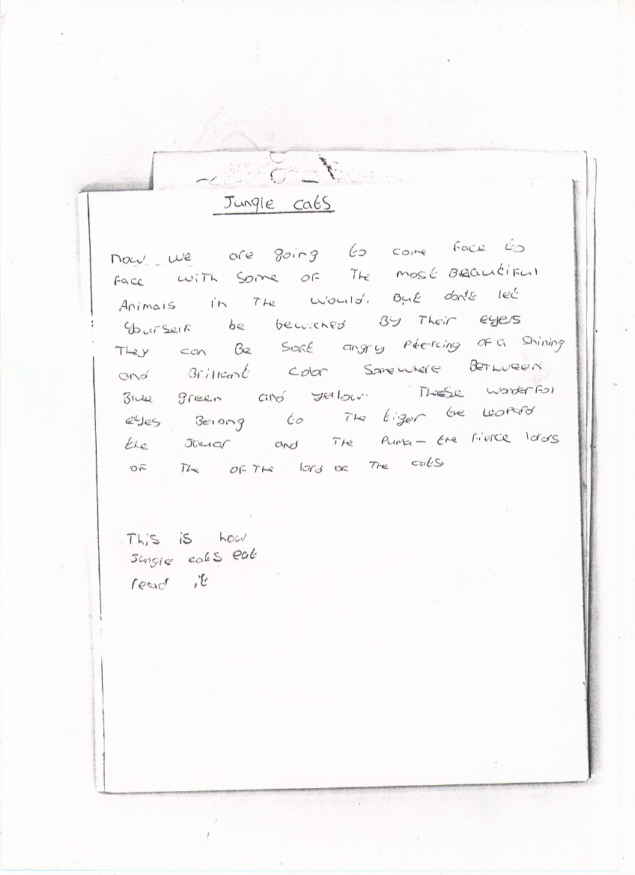 Jungle cats
now we are going to come face to
face with some of The most Beautiful
Animals in The would. But don't let
yourself be bewiched By Their eyes
They can Be Soft angry Peercing of a Shining
and Brilliant color Somewhere Between
Blue green and yellow. These wonderfol
eyes Belong to The tiger the Leopard
the and The Puma - the fierce lords
of The of The lord of The cats
This is how
Jungle cats eat
read it